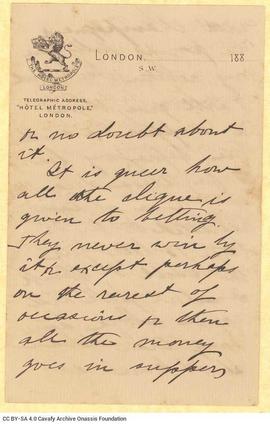 THE HÔTEL METROPOLE
LONDON
LONDON, 188
S.W.
TELEGRAPHIC ADDRESS,
"HÔTEL MÉTROPOLE,"
LONDON.
or no doubt about
it.
It is queer how
all the clique is
given to betting.
They never win by
it & except perhaps
on the rarest of
occasions & then
all the money
goes in suppers
CC BY-SA 4.0 Cavafy Archive Onassis Foundation